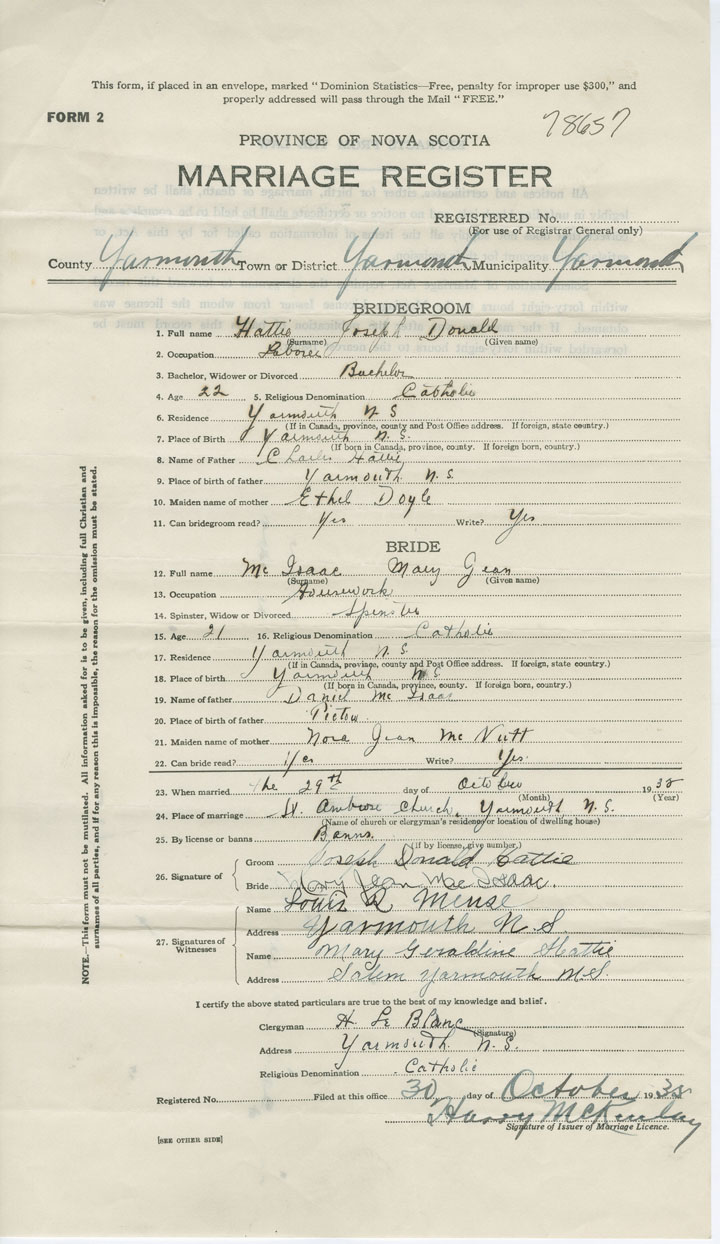 This form, if placed in an envelope, marked "Dominion Statistics—Free, penalty for improper use $300," and
properly addressed will pass through the Mail "FREE."
FORM 2
78657
PROVINCE OF NOVA SCOTIA
MARRIAGE REGISTER
REGISTERED No.
(For use of Registrar General only)
County Yarmouth Town or District Yarmouth Municipality Yarmouth
BRIDEGROOM
1. Full name Hattie Joseph Donald
(Surname) (Given name)
2. Occupation Laborer
3. Bachelor, Widower or Divorced Bachelor
4. Age 22 5. Religious Denomination Catholic
6. Residence Yarmouth N S
(If in Canada, province, county and Post Office address. If foreign, state country.)
7. Place of Birth Yarmouth N. S.
(If born in Canada, province, county. If foreign born, country.)
8. Name of Father Charles Hattie
9. Place of birth of father Yarmouth N. S.
10. Maiden name of mother Ethel Doyle
11. Can bridegroom read? Yes Write? Yes
BRIDE
12. Full name Mc Isaac Mary Jean
(Surname) (Given name)
13. Occupation Housework
14. Spinster, Widow or Divorced Spinster
15. Age 21 16. Religious Denomination Catholic
17. Residence Yarmouth N S
(If in Canada, province, county and Post Office address. If foreign, state country.)
18. Place of birth Yarmouth N S
(If born in Canada, province, county. If foreign born, country.)
19. Name of father Daniel Mc Isaac
20. Place of birth of father Pictou
21. Maiden name of mother Nora Jean Mc Nutt
22. Can bride read? Yes Write? Yes.
23. When married the 29th day of October 1938
(Month) (Year)
24. Place of marriage St. Ambrose Church, Yarmouth N. S.
(Name of church or clergyman's residence or location of dwelling house)
25. By license or banns Banns.
(if by license, give number.)
26. Signature of
Groom Joseph Donald Hattie
Bride Mary Jean MacIsaac.
27. Signatures of Witnesses
Name Louis R Meuse
Address Yarmouth N. S.
Name Mary Geraldine Hattie
Address Salem Yarmouth N.S.
I certify the above stated particulars are true to the best of my knowledge and belief.
Clergyman H. Le Blanc
(Signature)
Address Yarmouth N. S.
Religious Denomination Catholic
Registered No. Filed at this office 30 day of October 1938
Harry McKinlay
Signature of Issuer of Marriage Licence.
[SEE OTHER SIDE]
NOTE.—This form must not be mutilated. All information asked for is to be given, including full Christian and
surnames of all parties, and if for any reason this is impossible, the reason for the omission must be stated.